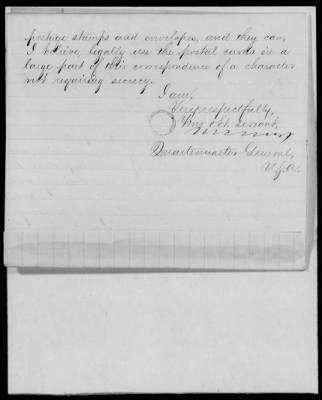 postage stamps and envelopes, and they can,
I believe, legally use the postal cards in a
large part of their correspondence of a character
not requiring secrecy.
I am,
Very respectfully,
Your obt. servant,
Quartermaster General,
U.S.A.